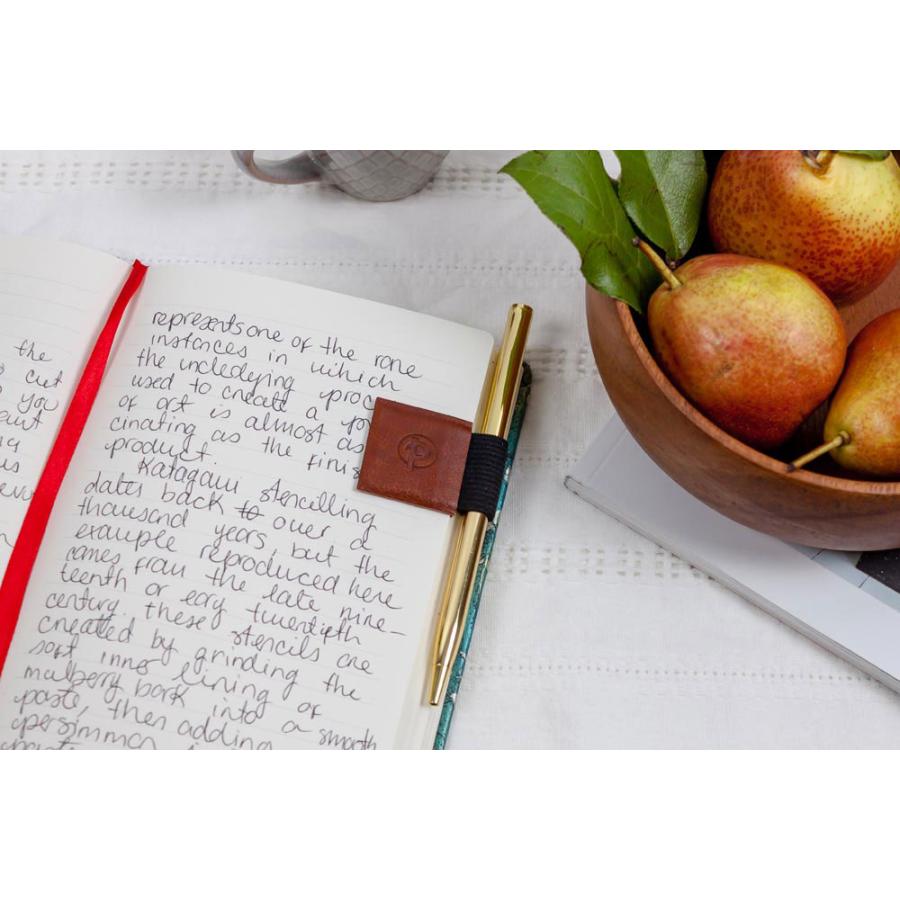 the
cut
you
represents one of the rare
instances in which
the underlying proc
used to create a
of art is almost as
cinating as the finis
product.
Katagami stencilling
dates back to over a
thousand years, but the
example reproduced here
comes from the late nine-
teenth or eary twentieth
century. these stencils are
created by grinding the
soft inner lining of
mulberry bark into a smooth
paste, then adding
persimmon